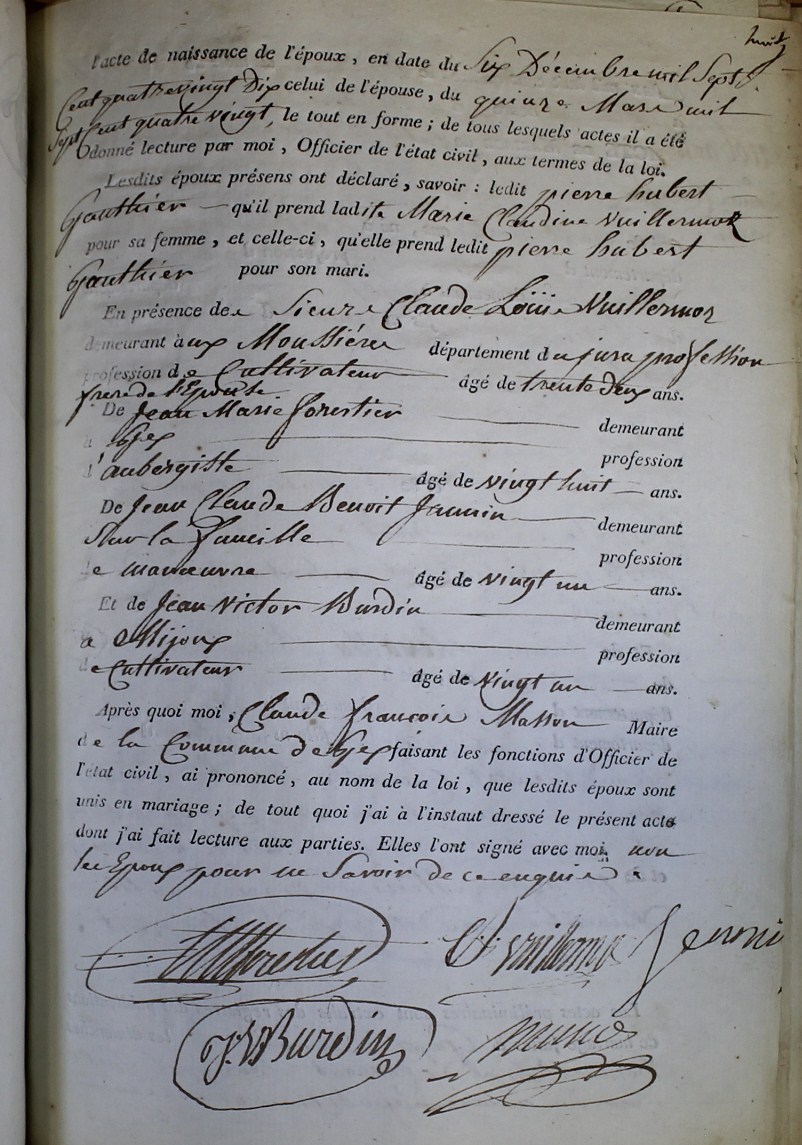 huit
l'acte de naissance de l'époux, en date du Six Décembre mil Sept
Cent quatre vingt Dix celui de l'épouse, du quinze Mars mil
Sept Cent quatre vingt, le tout en forme; de tous lesquels actes il a été
donné lecture par moi, Officier de l'état civil, aux termes de la loi.
Lesdits époux présens ont déclaré, savoir: ledit pierre hubert
Gauthier — qu'il prend ladite Marie Claudine Vuillermoz
pour sa femme, et celle-ci, qu'elle prend ledit pierre hubert
Gauthier pour son mari.
En présence de Sieurs Claude Loüis Vuillermoz
demeurant aux Moussières département du jura profession
profession de Cultivateur âgé de trente deux ans.
frere de l'Epouse
De Jean Marie forestier — demeurant
à Gex — profession
d'aubergiste — âgé de vingt huit — ans.
De Jean Claude Benoit — demeurant
Sur la faucille — profession
de manœuvre — âgé de vingt un — ans.
Et de Jean Victor Burdin — demeurant
a Mijoux — profession
de Cultivateur — âgé de vingt un — ans.
Après quoi moi, Claude françois Masson — Maire
de la Commune de Gex faisant les fonctions d'Officier de
l'état civil, ai prononcé, au nom de la loi, que lesdits époux sont
unis en mariage; de tout quoi j'ai à l'instant dressé le présent acte
dont j'ai fait lecture aux parties. Elles l'ont signé avec moi, non
les Epoux pour ne Savoir de ce enquis.
JM forestier
Cl Vuillermoz
J V Burdin